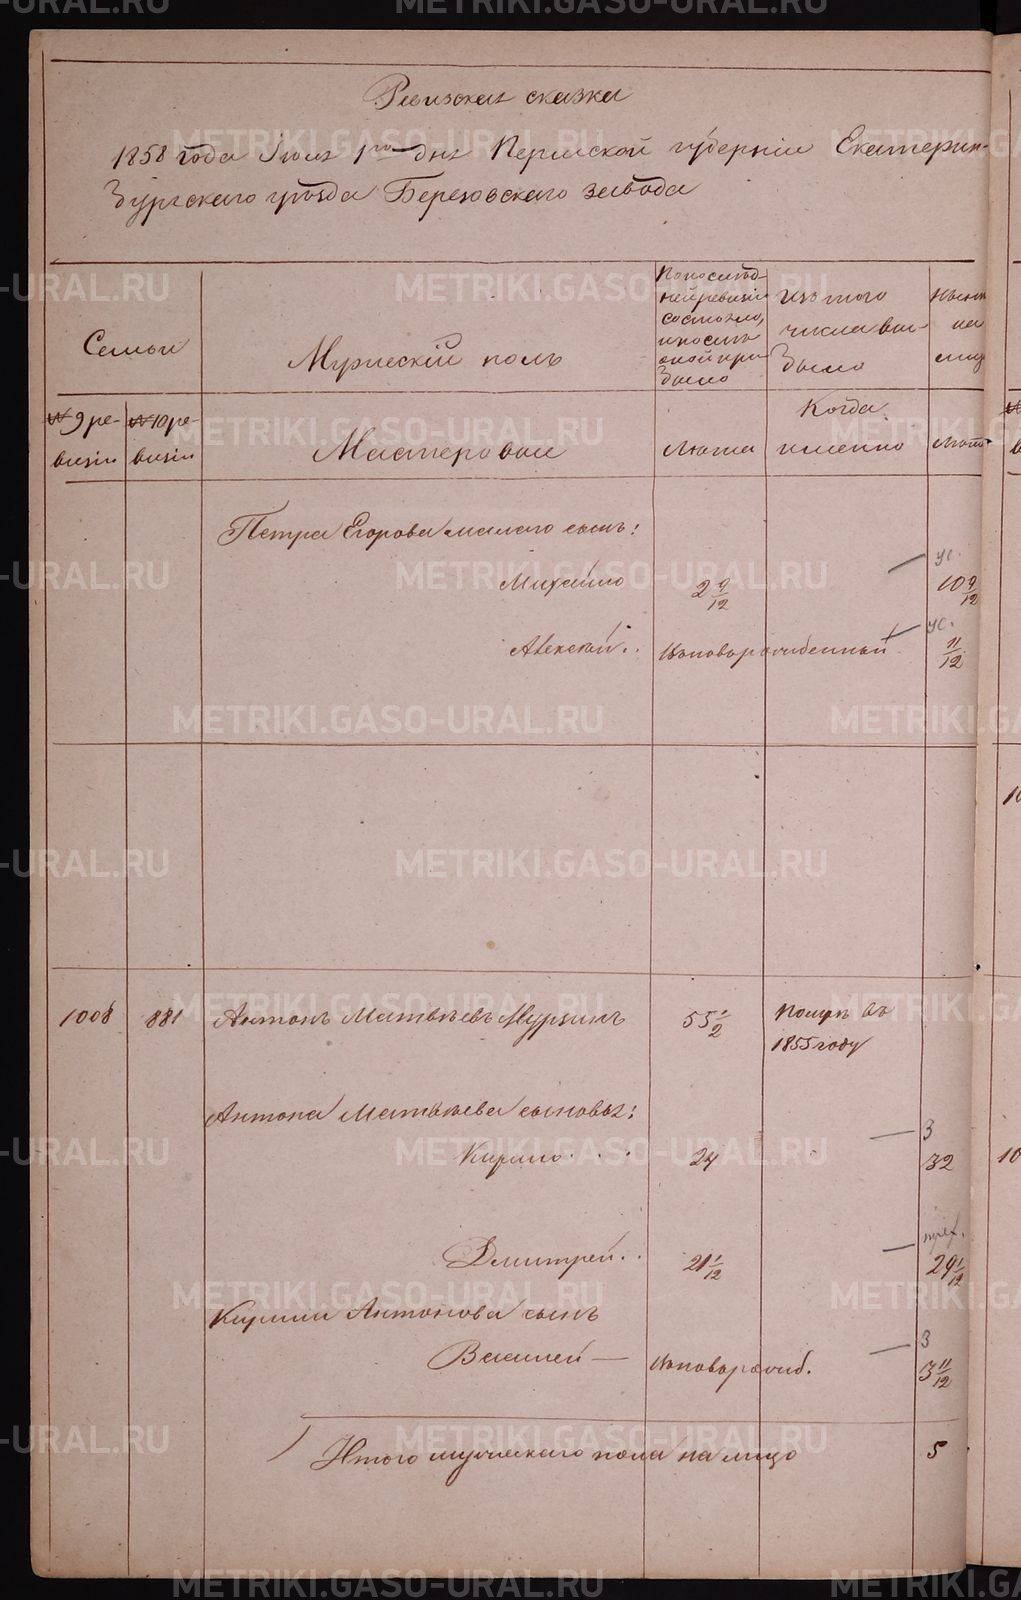 Ревизская сказка
1858 года Iюня 1го дня Пермской губернiи Екатерин-
бургского уѣзда Березовского завода
Семьи
Мужескiй полъ
По послѣд-
ней ревизiи
состояло,
и послѣ
оной при-
было
Изъ того
числа вы-
было
Нынѣ
на
лицо
№ 9 ре-
визiи
№ 10 ре-
визiи
Мастеровые
Лѣта
Когда
именно
Лѣта
Петра Егорова малаго сынъ:
Михайло 2 9/12 ус. 10 9/12
Алексѣй.. Новорожденный ус. 11/12
1008 881 Антонъ Матвѣевъ Мурзинъ 55 1/2 Померъ въ
1855 году
Антона Матвѣева сыновья:
Кирило . . . 24 3 32
Дмитрей.. 21 1/12 29 1/12
Кирилы Антонова сынъ
Василей — Новорожд. 3 3 11/12
Итого мужескаго пола на лицо 5
METRIKI.GASO-URAL.RU